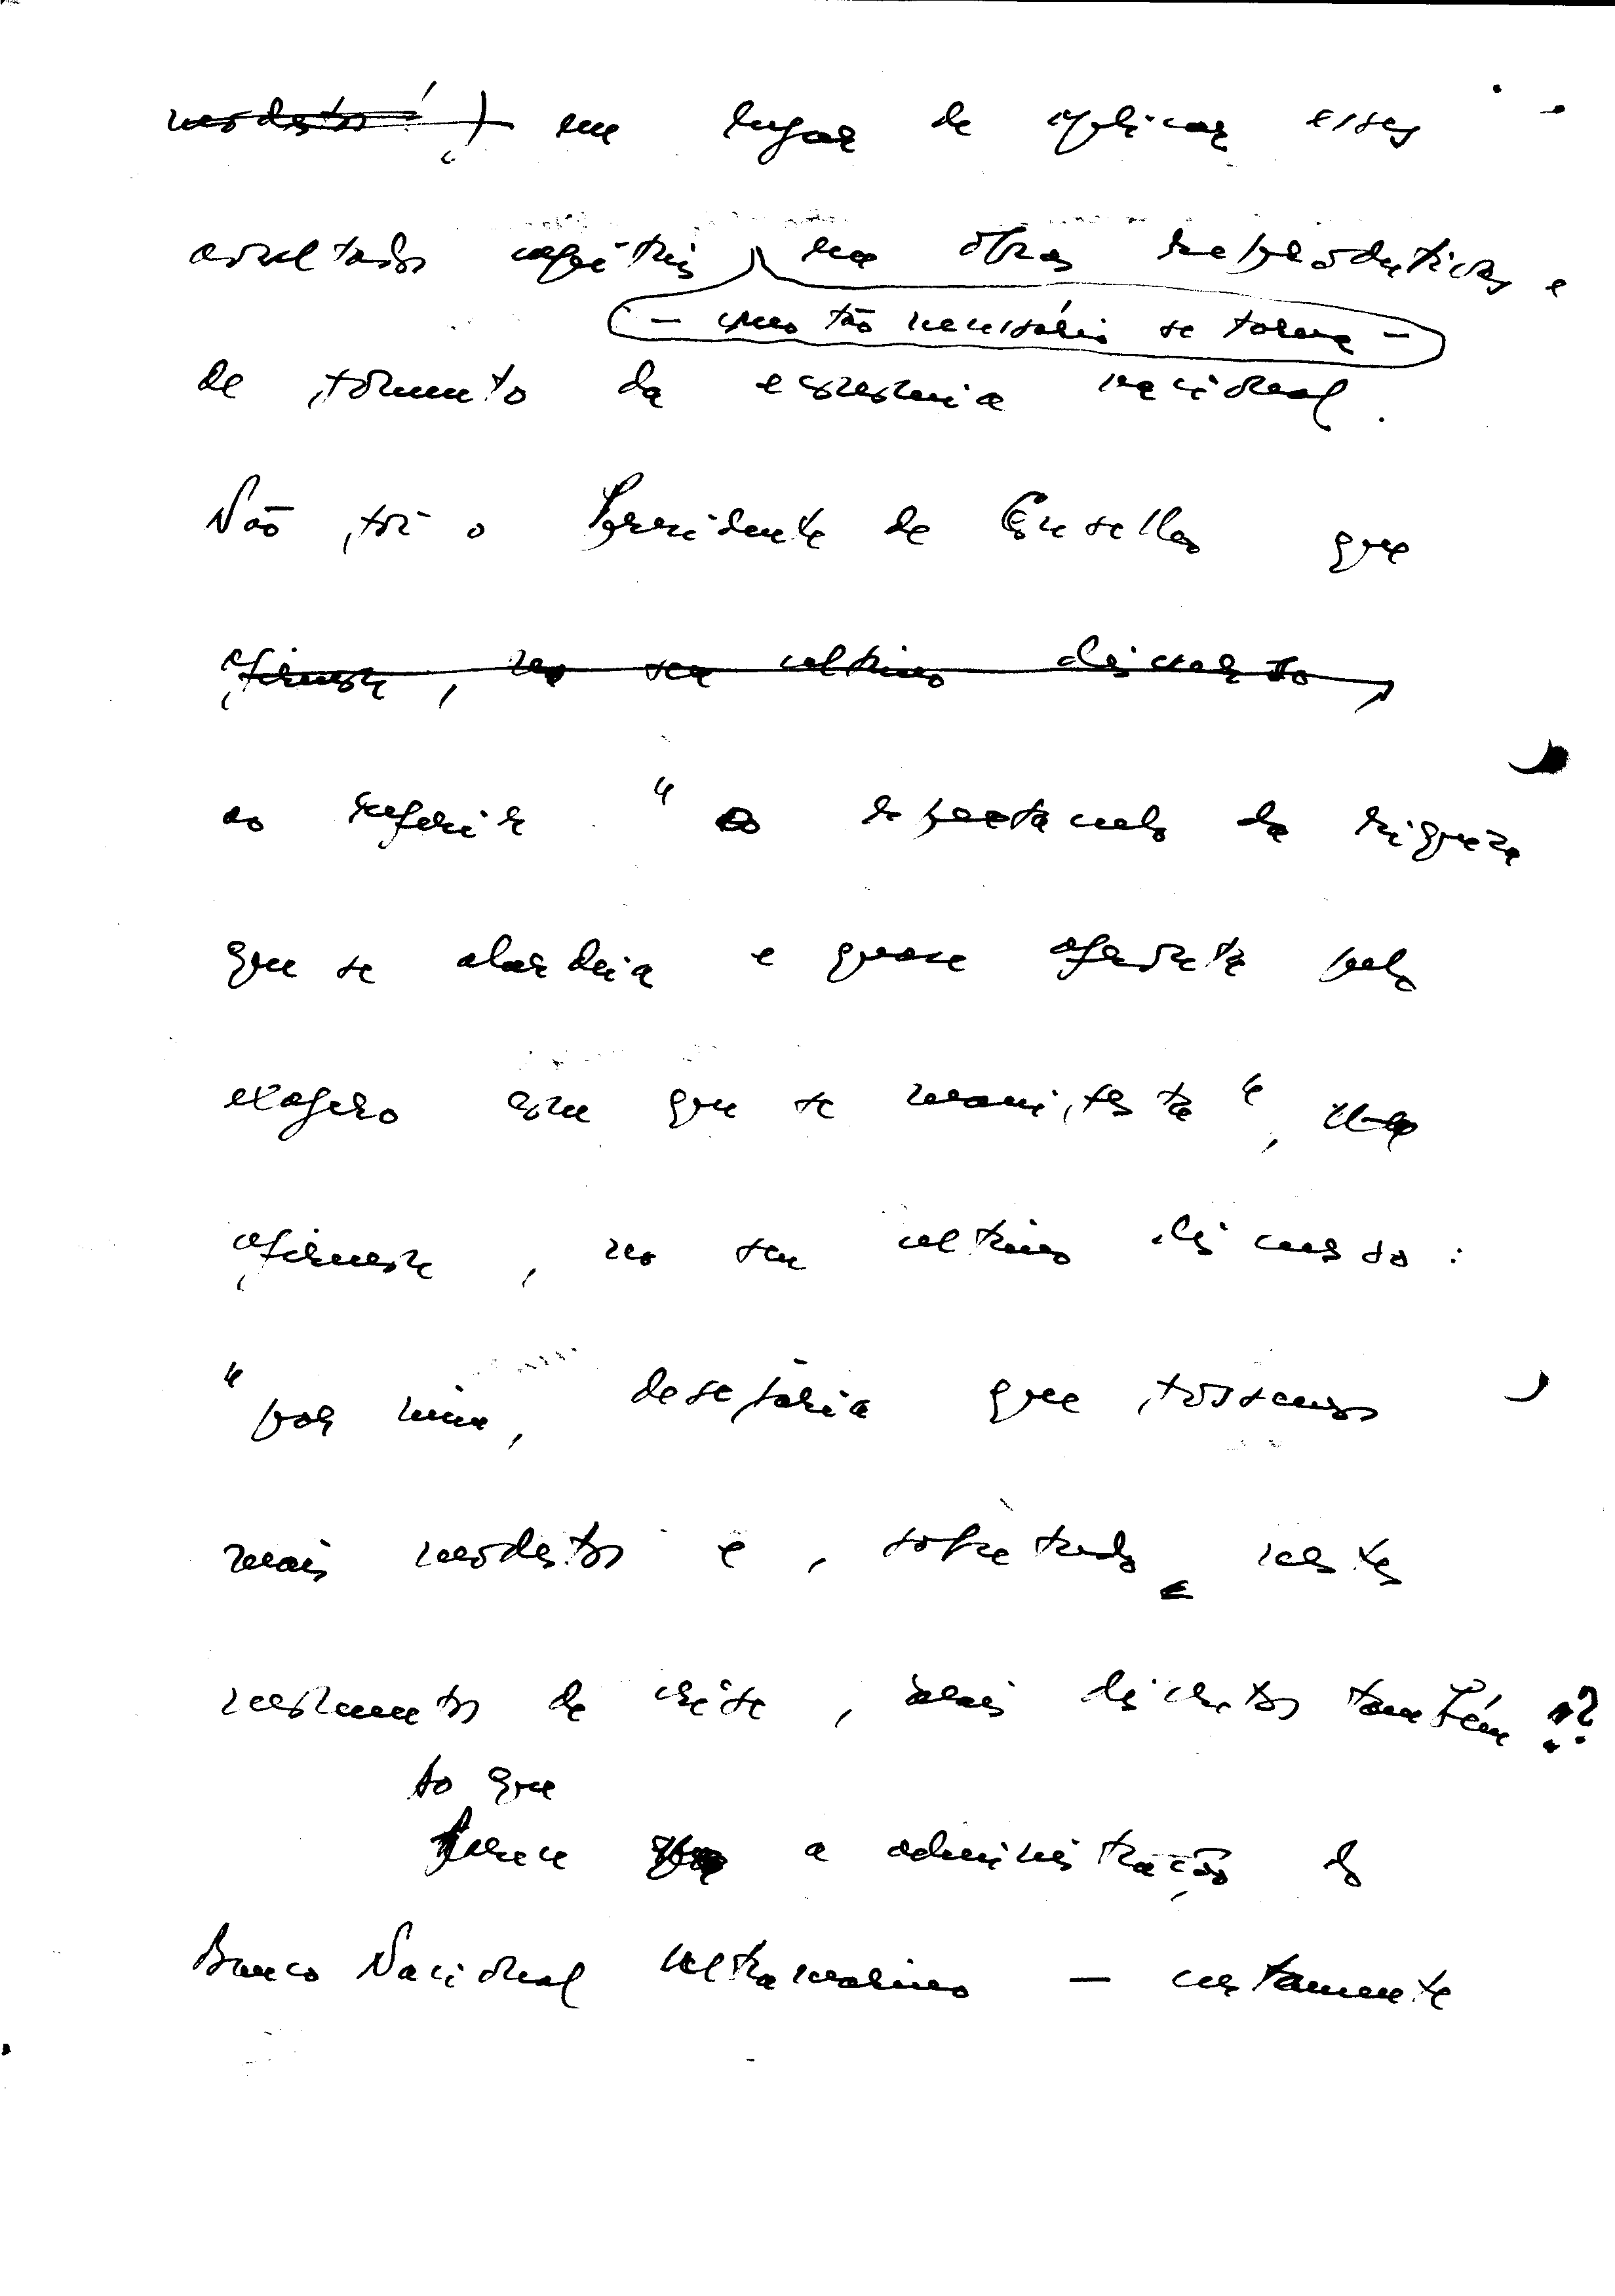 modestos!), em lugar de aplicar esses
avultados capitais em obras reprodutivas e
- como tão necessário se torna -
de fomento da economia nacional.
Não foi o Presidente do Conselho que
afirmou, no seu último discurso,
ao referir "o espectáculo da riqueza
que se alardeia e quase afronta pelo
exagero com que se manifesta",
afirmou, no seu último discurso:
"por mim, desejaria que fôssemos
mais modestos e, sobretudo nestes
momentos de crise, mais discretos também"?
to que
parece a administração do
Banco Nacional Ultramarino - certamente